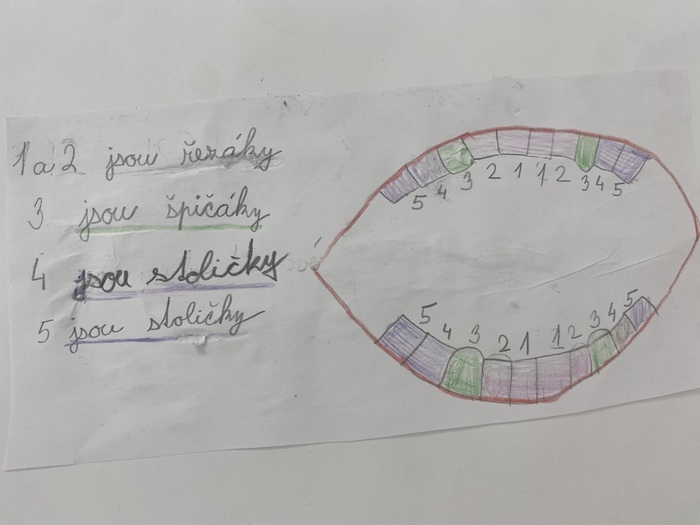 1 a 2 jsou řezáky
3 jsou špičáky
4 jsou stoličky
5 jsou stoličky
5 4 3 2 1 1 2 3 4 5
5 4 3 2 1 1 2 3 4 5